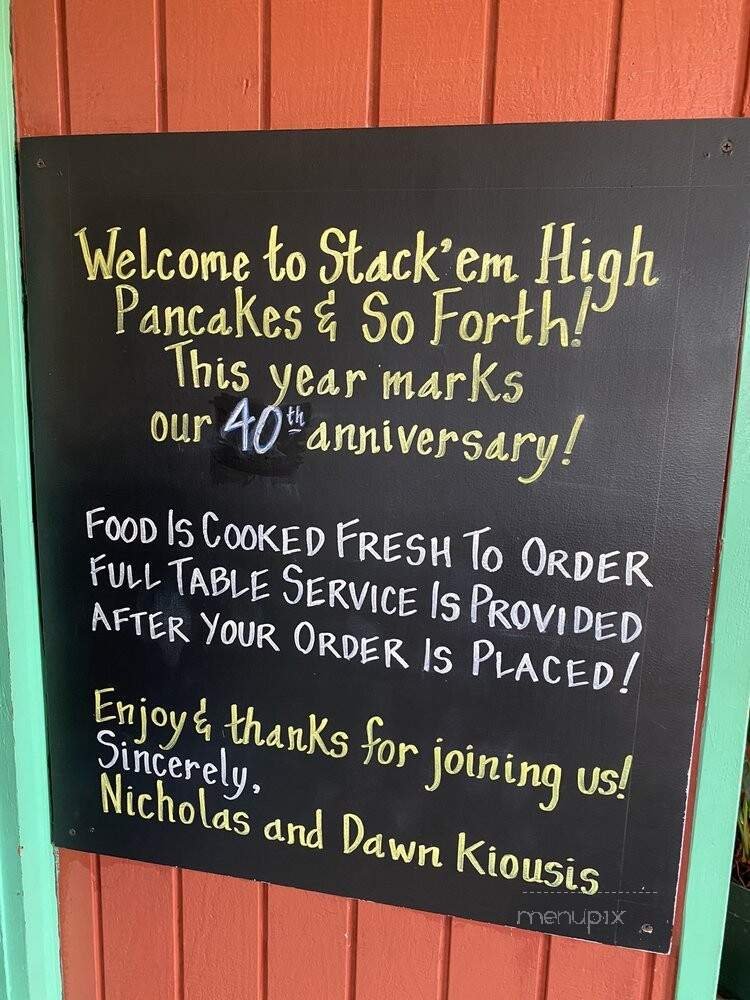 Welcome to Stack'em High
Pancakes & So Forth!
This year marks
our 40th anniversary!
FOOD IS COOKED FRESH TO ORDER
FULL TABLE SERVICE IS PROVIDED
AFTER YOUR ORDER IS PLACED!
Enjoy & thanks for joining us!
Sincerely,
Nicholas and Dawn Kiousis
menupix